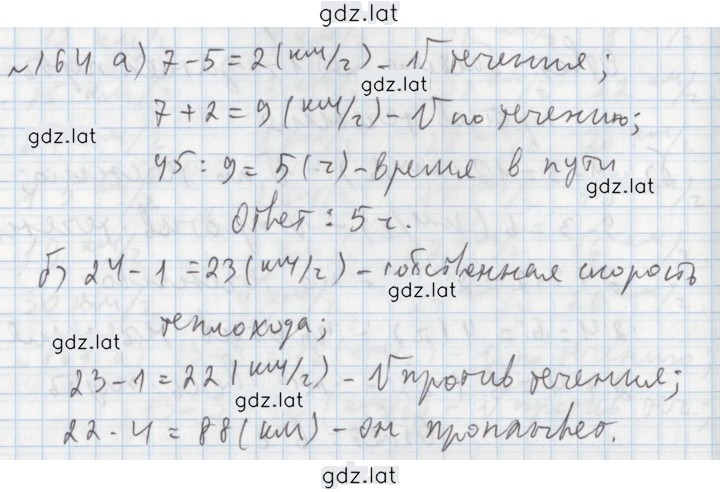 gdz.lat
№164 а) 7 - 5 = 2 (км/ч) - V течения;
gdz.lat
7 + 2 = 9 (км/ч) - V по течению;
gdz.lat
45 : 9 = 5 (ч) - время в пути
gdz.lat
Ответ: 5 ч.
б) 24 - 1 = 23 (км/ч) - собственная скорость
gdz.lat
теплохода;
gdz.lat
23 - 1 = 22 (км/ч) - V против течения;
gdz.lat
22 · 4 = 88 (км) - он проплывёт.
gdz.lat